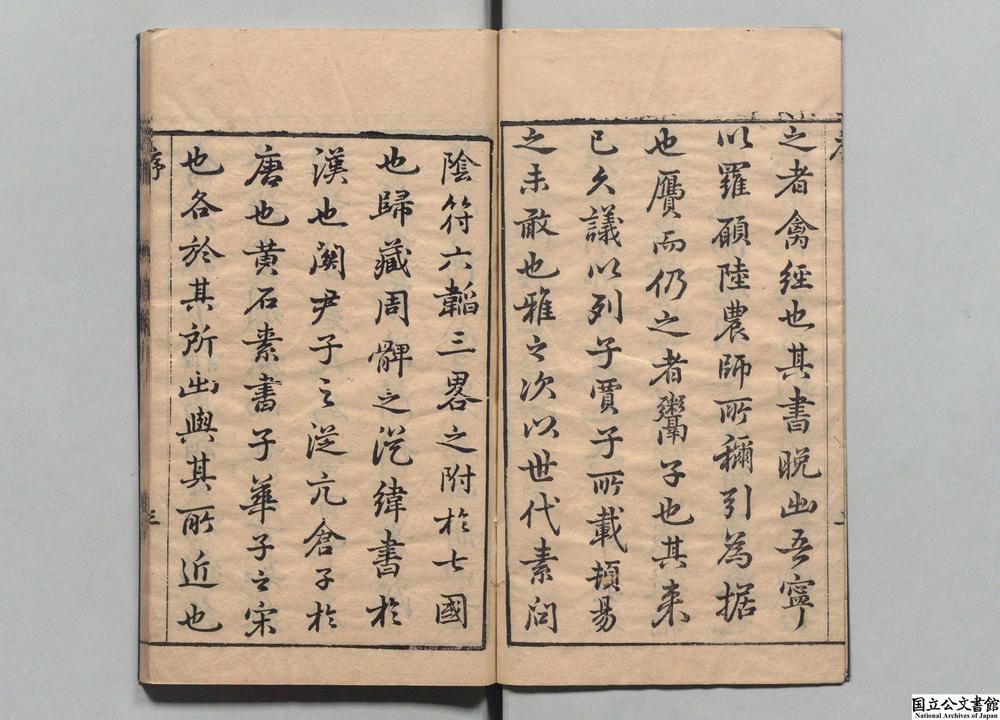 之者禽經也其書晚出吾寧
以羅願陸農師所稱引為据
也贋而仍之者鬻子也其來
已久議以列子賈子所載頓易
之未敢也雅之次以世代素问
陰符六韜三畧之附於七國
也歸藏周髀之從緯書於
漢也関尹子之從亢倉子於
唐也黄石素書子華子之宋
也各於其所出與其所近也
序
三
国立公文書館
National Archives of Japan